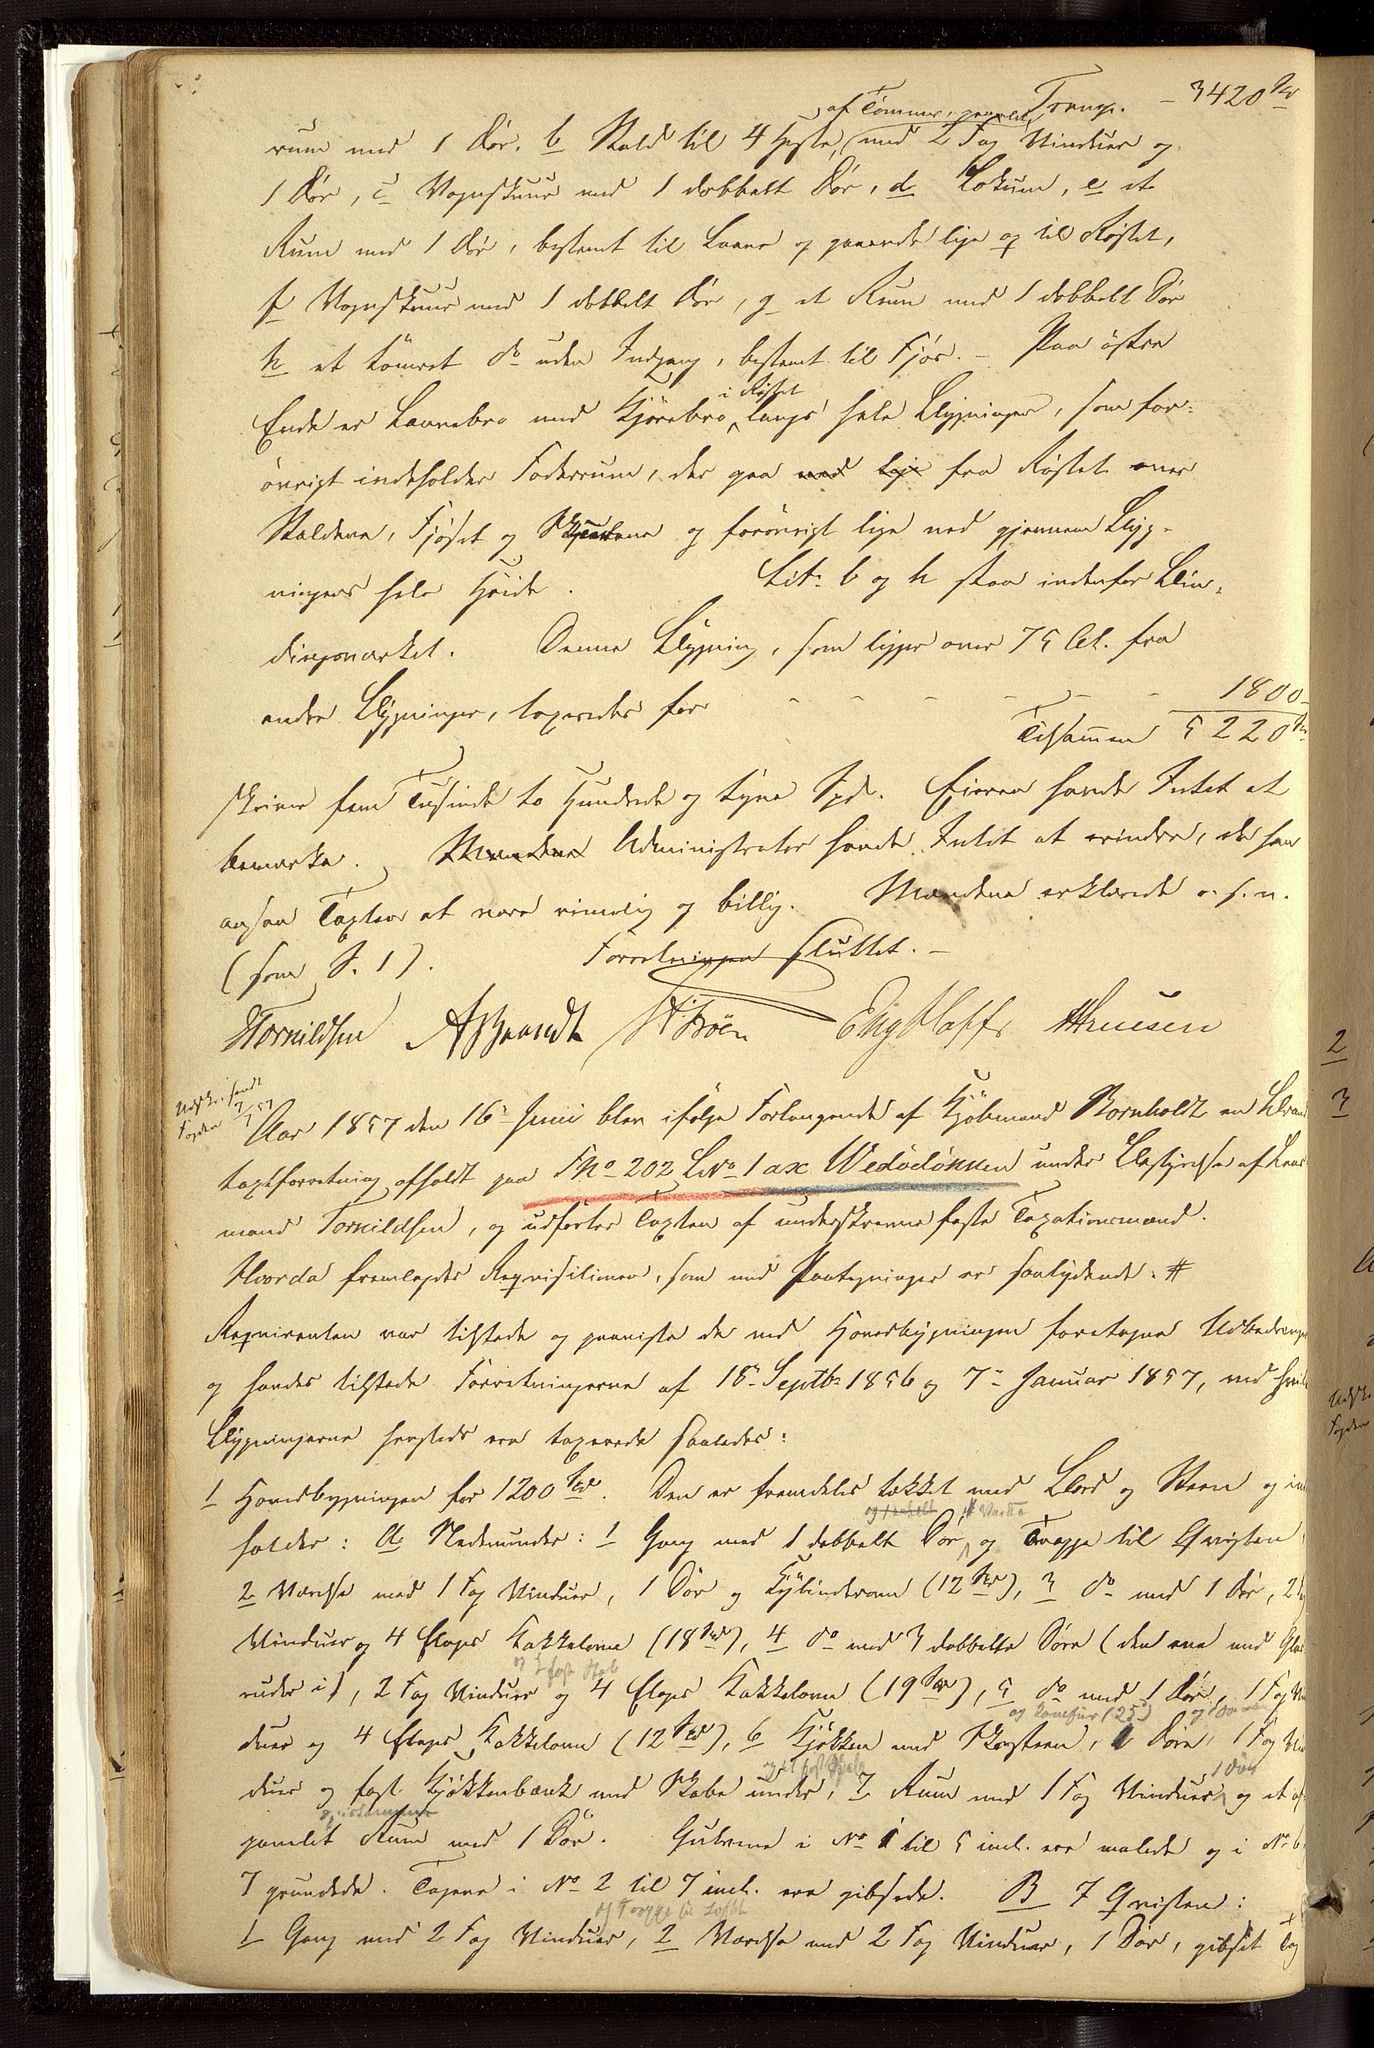 Transp. – 3420 Spd
rum med 1 Dør, b Stald til 4 Heste, af Tømmer, panelet, med 2 Fag Vinduer og
1 Dør, c Vognskuur med 1 dobbelt Dør, d Lokum, e et
Rum med 1 Dør, bestemt til Laave og gaaende lige op til Røstet,
f Vognskuur med 1 dobbelt Dør, g et Rum med 1 dobbelt Dør
h et tømret do uden Indgang, bestemt til Fjøs. – Paa østre
Ende er Laavebro med Kjørebro i Røstet langs hele Bygningen, som for-
øvrigt indeholder Foderrum, der gaa fra Røstet over
Staldene, Fjøset og Skuurene og forøvrigt lige ned gjennem Byg-
ningens hele Høide. Litr. b og h staa indenfor Bin-
dingsværket. Denne Bygning, som ligger over 75 Al. fra
andre Bygninger, taxeredes for - - - - - - 1800 -
Tilsammen 5220 Spd
skriver fem Tusinde to Hundrede og tyve Spd. Eieren havde Intet at
bemærke. Administrator havde Intet at erindre, da han
ansaa Taxten at være rimelig og billig. Mændene erklærede o. s. v.
(som S. 1). Forretningen sluttet. –
Tornildsen A Brandt Støen Engh Hoff Hansen
Udskr. sendt
Fogden 57
Aar 1857 den 16de Juni blev ifølge Forlangende af Kjøbmand Bornholdt en Brand
taxtforretning afholdt paa Mno 202 Lno 1 ax Wedøløkken under Bestyrelse af Lens
mand Tornildsen, og udførtes Taxten af underskrevne faste Taxationsmænd.
Hvorda fremlagdes Reqvisitionen, som med Paategninger er saalydende: #
Reqvirenten var tilstede og paaviste de ved Hovedbygningen foretagne Udbedringer
og havdes tilstede Forretningerne af 18de Septbr 1856 og 7de Januar 1857, ved hvilke
Bygningerne hersteds ere taxerede saaledes:
1 Hovedbygningen for 1200 Spd. Den er fremdeles tækket med Bord og Steen og inde
holder: A Nedenunder: 1 Gang med 1 dobbelt Dør, og Trappe til Qvisten,
2 Værelse med 1 Fag Vinduer, 1 Dør og Cylinderovn (12 Spd), 3 do med 1 Dør, 2 Fag
Vinduer og 4 Etages Kakkelovn (18 Spd), 4 do med 3 dobbelte Døre (den ene med Glas
og 1 fast Skab
ruder i), 2 Fag Vinduer og 4 Etages Kakkelovn (19 Spd), 5 do med 1 Dør, 1 Fag Vin
og Komfur (25)
duer og 4 Etages Kakkelovn (12 Spd), 6 Kjøkken med Skorsteen, 2 Døre, 1 Fag Vin
1 Dør
duer og fast Kjøkkenbænk med Skabe under, 7 Rum med 1 Fag Vinduer og et af-
Spisekammer
panelet Rum med 1 Dør. Gulvene i No 1 til 5 incl. ere malede og i No 6,
7 grundede. Tagene i No 2 til 7 incl. ere gibsede. B I Qvisten:
og Trappe til Loftet
1 Gang med 2 Fag Vinduer, 2 Værelse med 2 Fag Vinduer, 1 Dør, gibset Tag